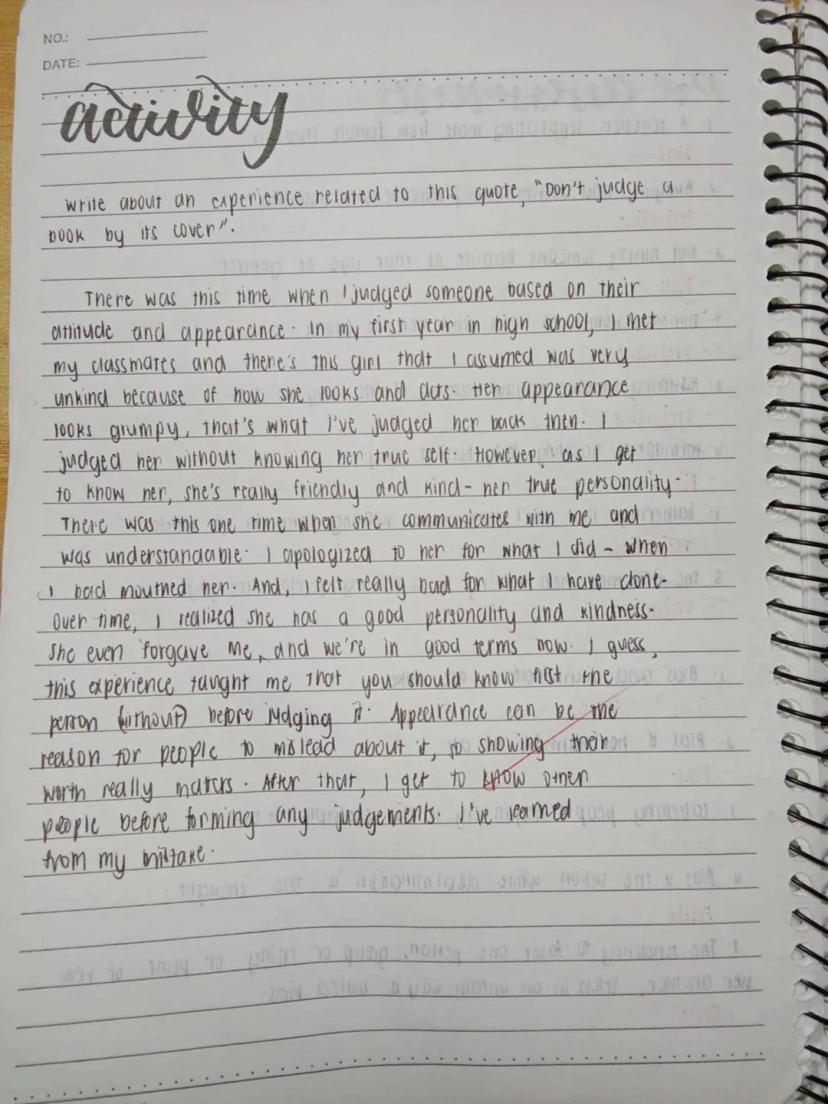 NO.:
DATE:
activity
Write about an experience related to this quote, "Don't judge a
book by its cover".
There was this time when I judged someone based on their
attitude and appearance. In my first year in high school, I met
my classmates and there's this girl that I assumed was very
unkind because of how she looks and acts. Her appearance
looks grumpy, that's what I've judged her back then. I
judged her without knowing her true self. However, as I get
to know her, she's really friendly and kind - her true personality.
There was this one time when she communicates with me and
was understandable. I apologized to her for what I did - when
I bad mouthed her. And, I felt really bad for what I have done.
Over time, I realized she has a good personality and kindness.
She even forgave me, and we're in good terms now. I guess,
this experience taught me that you should know first the
person (without) before judging it. Appearance can be the
reason for people to mislead about it, so showing their
worth really matters. After that, I get to know other
people before forming any judgements. I've learned
from my mistake.